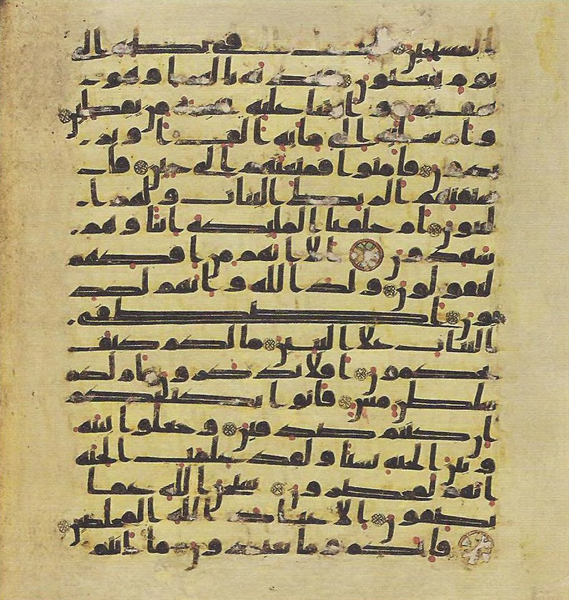 المسبحين للبث في بطنه الى
يوم يبعثون فنبذنه بالعرا وهو
سقيم وانبتنا عليه شجرة من يقطين
وارسلنه الى مايه الف او يز
يدون فامنوا فمتعنهم الى حين فا
ستفتهم الربك البنات ولهم ا
لبنون ام خلقنا المليكه انثا وهم
شهدون الا انهم من افكهم
ليقولون ولد الله وانهم لكذ
بون اصطفى
البنات على البنين مالكم كيف
تحكمون افلا تذكرون ام لكم
سلطن مبين فاتوا بكتبكم
ان كنتم صدقين وجعلوا بينه
وبين الجنه نسبا ولقد علمت الجنه
انهم لمحضرون سبحن الله عما
يصفون الا عباد الله المخلصين
فانكم وما تعبدون ما انتم